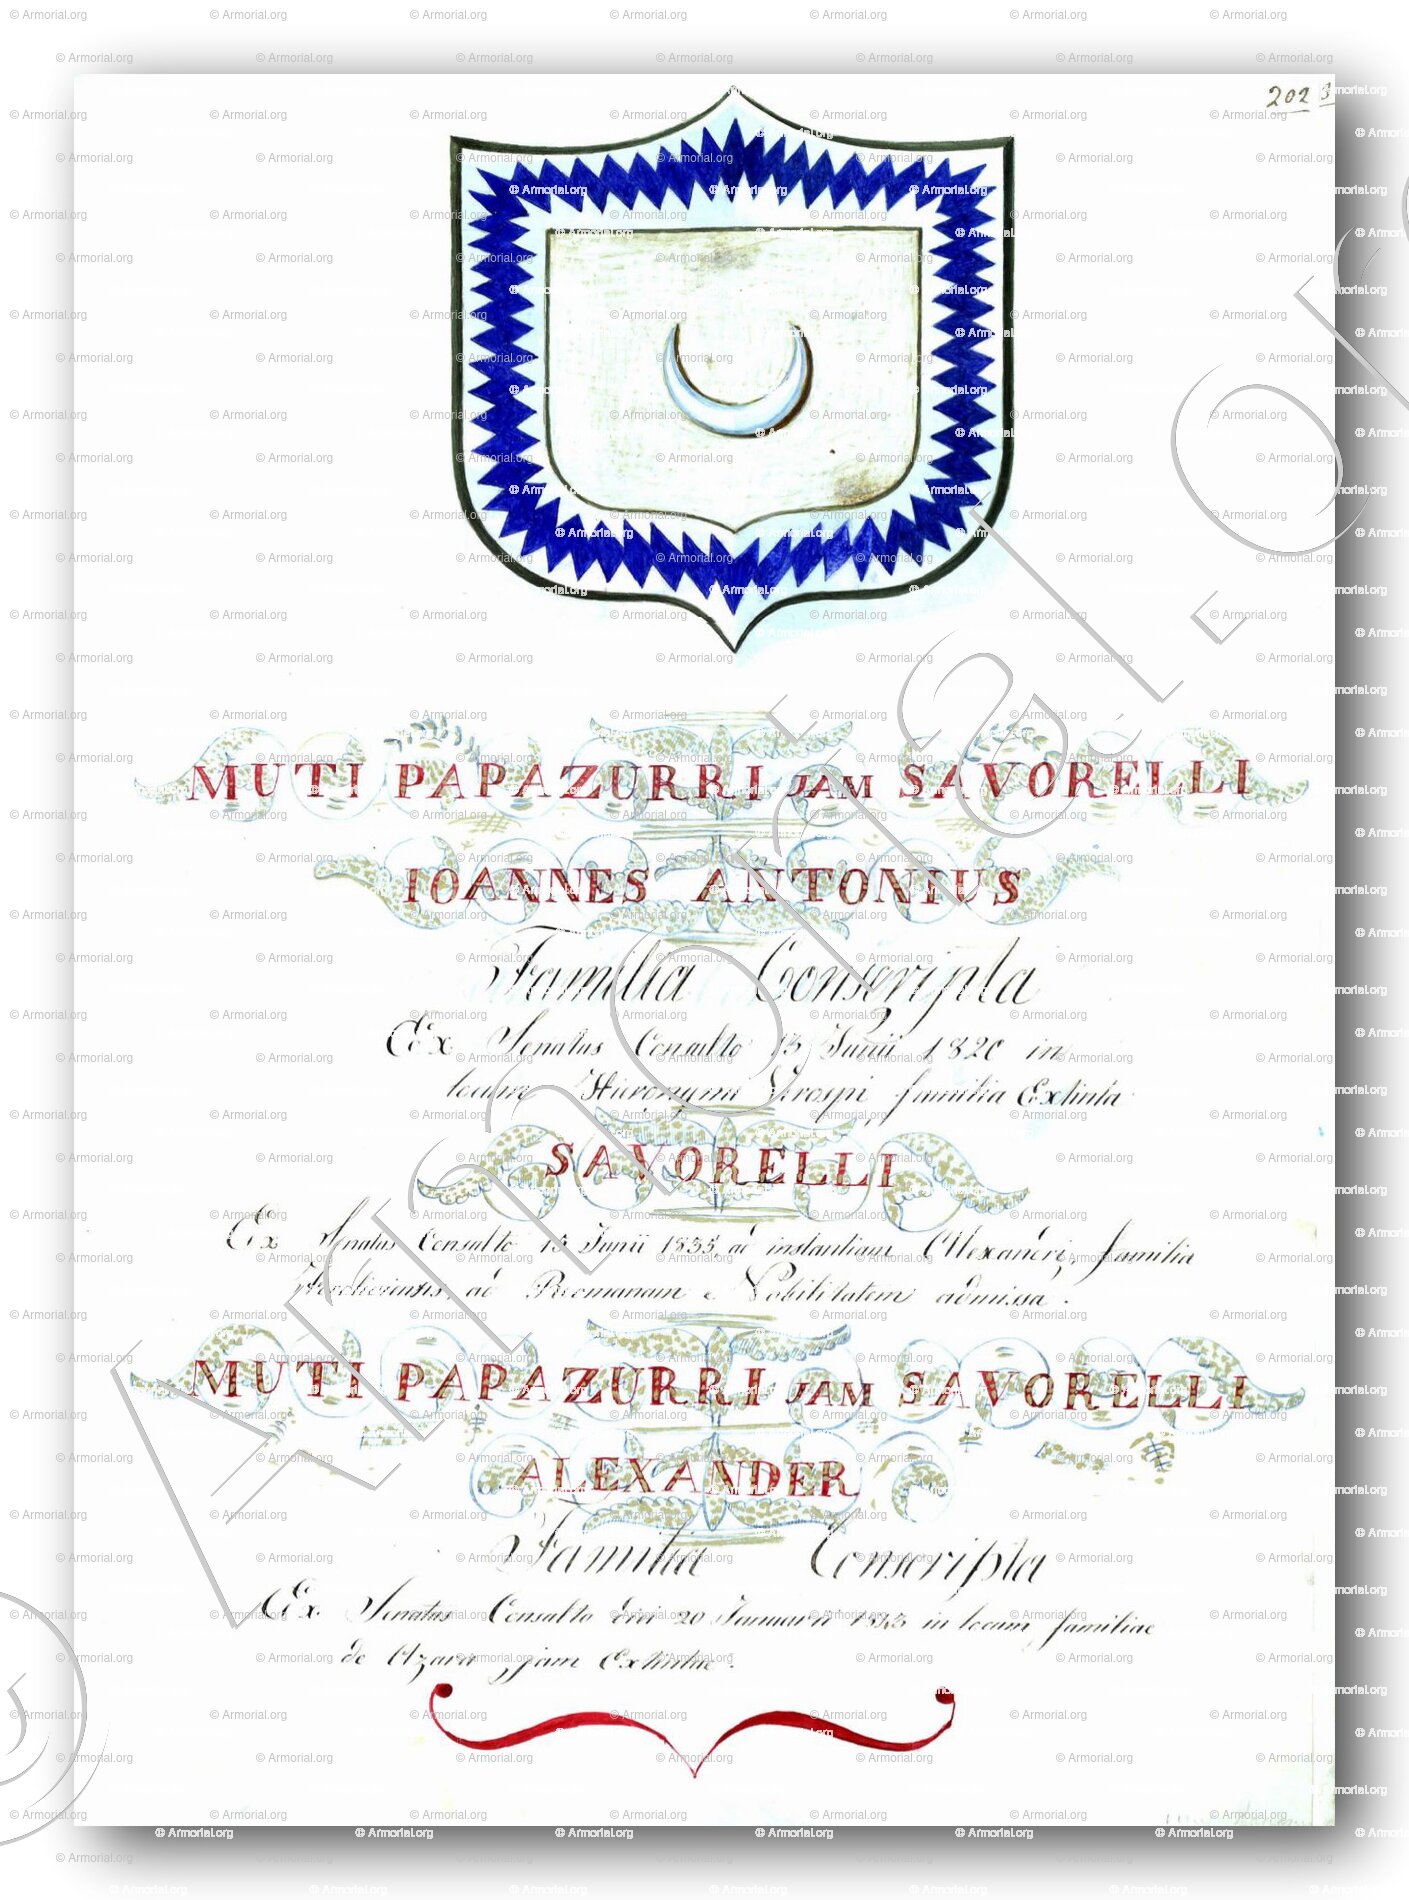 202
MUTI PAPAZURRI JAM SAVORELLI
IOANNES ANTONIUS
Familia Conscripta
Ex Senatus Consulto 15 Junii 1820 in
locum Hieronymi Verospi familia Extinta
SAVORELLI
Ex Senatus Consulto 15 Junii 1835, ad instantiam Alexanderi, familia
Foroliviensis, ad Romanam e Nobilitatem admissa.
MUTI PAPAZURRI JAM SAVORELLI
ALEXANDER
Familia Conscripta
Ex Senatus Consulto diei 20 Januarii in locum familiae
de Azara jam Extintae.
© Armorial.org